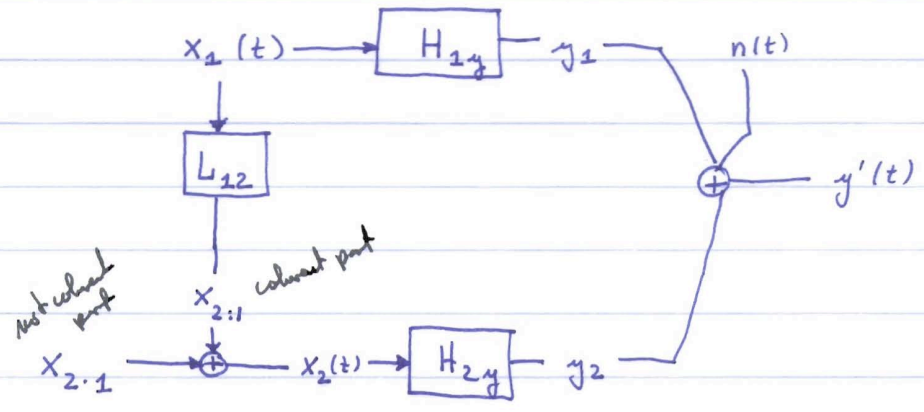 x₁(t) H₁y y₁ n(t)
L₁₂
y'(t)
not coherent part
coherent part
x₂:₁
x₂.₁ x₂(t) H₂y y₂